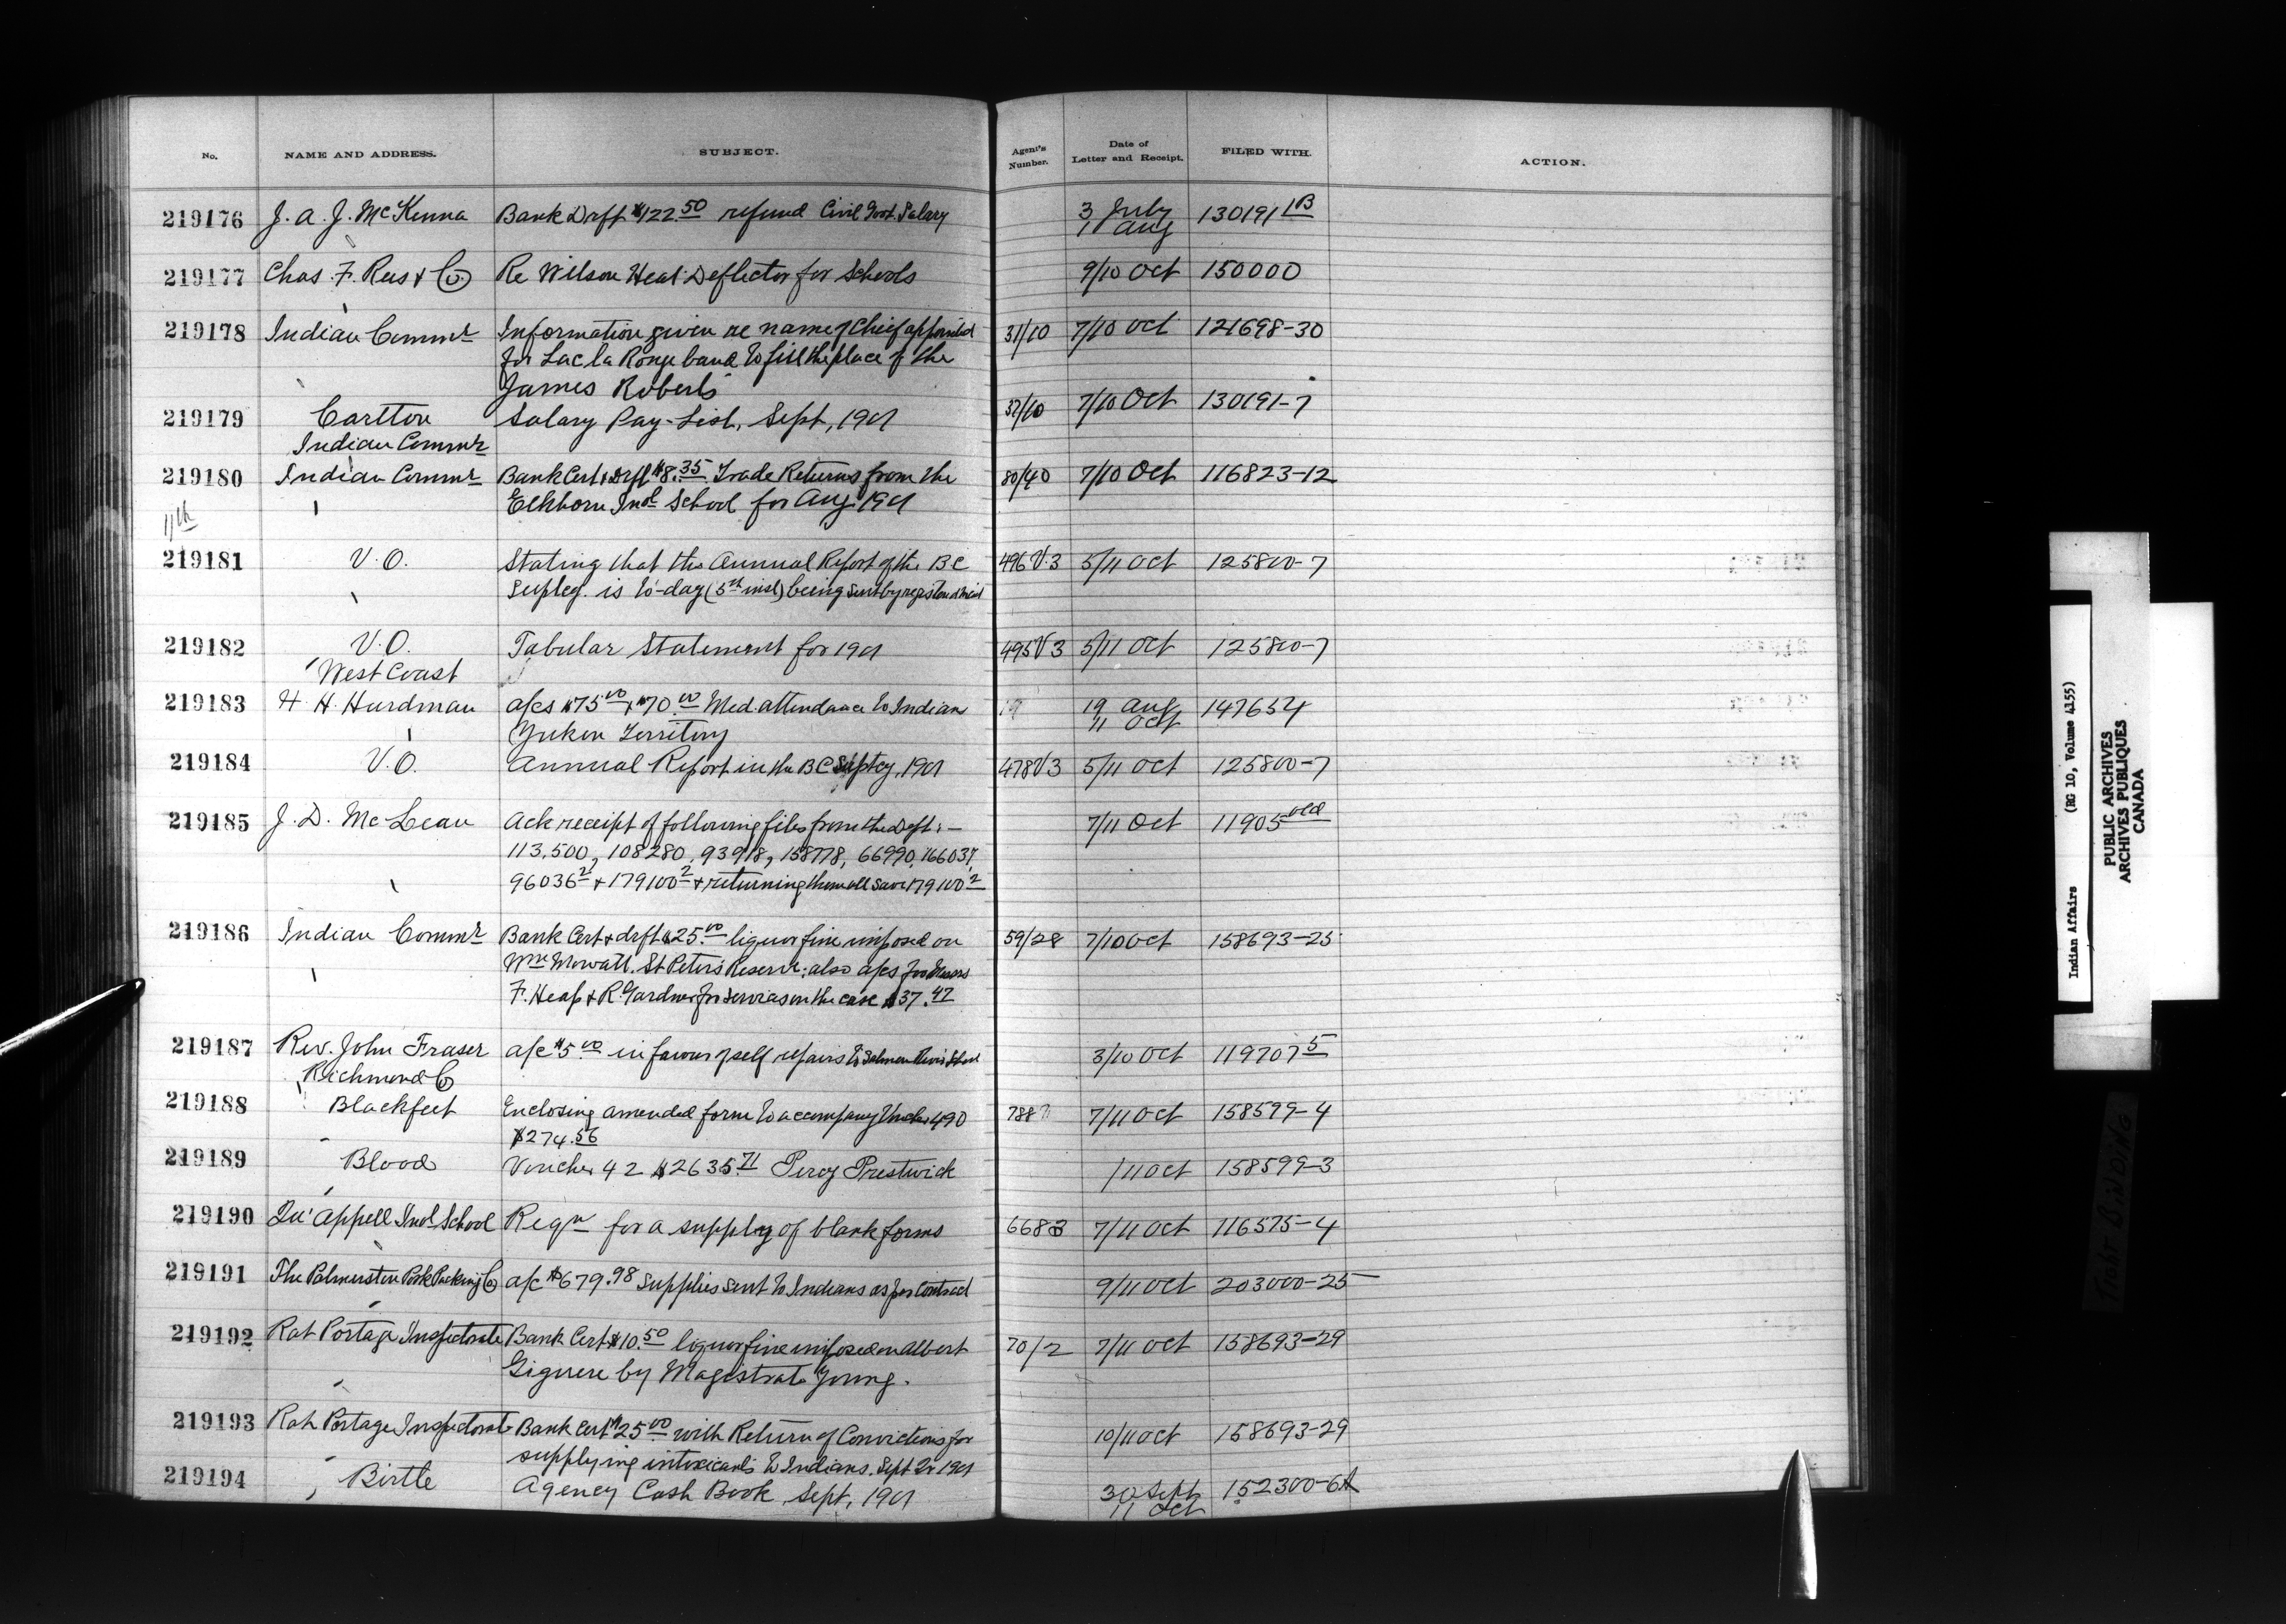 No. NAME AND ADDRESS. SUBJECT. Agent's Number. Date of Letter and Receipt. FILED WITH. ACTION.
219176 J. A. J. McKenna Bank Drft $122.50 refund Civil Govt. Salary 3 July 130191 1B
1 Aug
219177 Chas. F. Rees & Co Re Wilson Heat Deflector for Schools 9/10 Oct 150000
219178 Indian Commr Information given re name of Chief appointed 31/10 7/10 Oct 121698-30
for Lac la Ronge band to fill the place of the
James Roberts
219179 Carlton Salary Pay-List, Sept, 1901 32/10 7/10 Oct 130191-7
Indian Commr
219180 Indian Commr Bank Cert & Drft $8.35 Trade Returns from the 80/40 7/10 Oct 116823-12
Elkhorn Indl School for Aug 1901
11th
219181 V.O. Stating that the Annual Report of the BC 496 V.3 5/11 Oct 125800-7
Suptcy. is to-day (5th inst) being sent by registered mail
219182 V.O. Tabular Statement for 1901 495 V 3 5/11 Oct 125800-7
West Coast
219183 H. H. Hurdman a/cs $75.00 & $70.00 Med. attendance to Indian 19 Aug 147654
Yukon Territory 11 Oct
219184 V.O. Annual Report in the BC Suptcy, 1901 478 V3 5/11 Oct 125800-7
219185 J. D. McLean Ack receipt of following files from the Dept:— 7/11 Oct 11905 old
113,500, 108280, 93918, 158778, 66990, 166037,
96036 2 & 179100 2 & returning them all save 179100 2
219186 Indian Commr Bank Cert & drft $25.00 liquor fine imposed on 59/28 7/10 Oct 158693-25
Wm Mowatt. St Peter's Reserve; also a/cs from Messrs
F. Heap & R. Gardner for services in the case $37.47
219187 Rev. John Fraser a/c $5.00 in favour of self repairs to Salmon River School 3/10 Oct 119707 5
Richmond Co
219188 Blackfeet Enclosing amended form to accompany Voucher 490 788 7/11 Oct 158599-4
$274.56
219189 Blood Voucher 42 $2635.71 Percy Prestwick /11 Oct 158599-3
219190 Qu'Appell Indl School Reqn for a supply of blank forms 6683 7/11 Oct 116575-4
219191 The Palmerston Pork Packing Co a/c $679.98 supplies sent to Indians as per Contract 9/11 Oct 203000-25
219192 Rat Portage Inspectorate Bank Cert $10.50 liquor fine imposed on Albert 70/2 7/11 Oct 158693-29
Giguere by Magistrate Young.
219193 Rat Portage Inspectorate Bank Cert $25.00 with Return of Convictions for 10/11 Oct 158693-29
supplying intoxicants to Indians. Sept Qr 1901
219194 Birtle Agency Cash Book, Sept, 1901 30 Sept 152300-6A
11 Oct
Indian Affairs (RG 10, Volume 4155)
PUBLIC ARCHIVES
ARCHIVES PUBLIQUES
CANADA
TIGHT BINDING